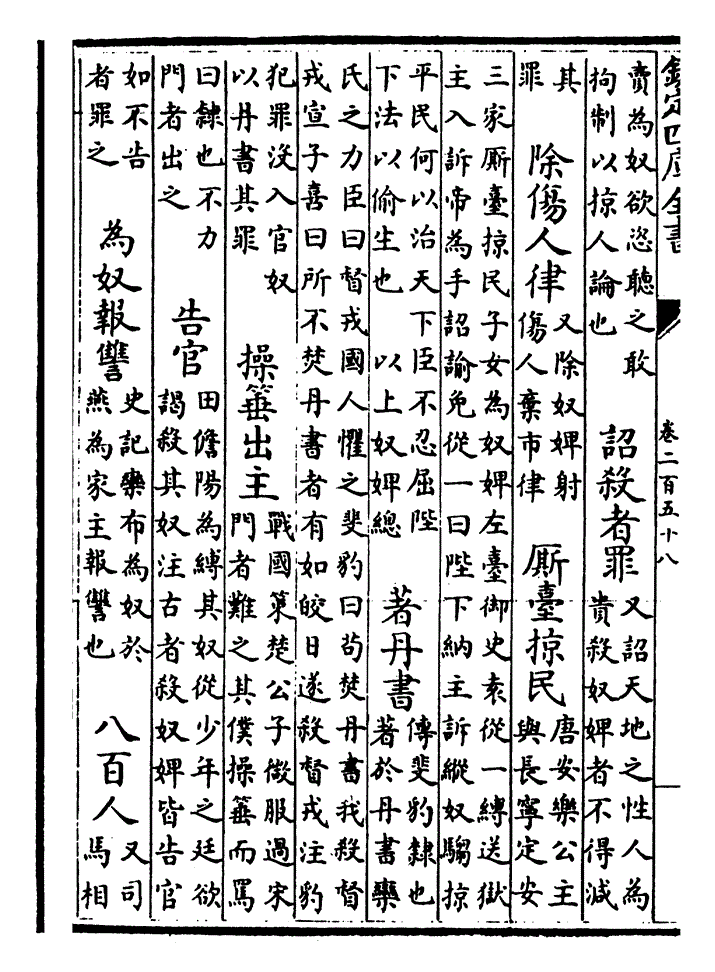 欽定四庫全書
卷二百五十八
賣為奴欲恣聽之敢
拘制以掠人論也
詔殺者罪
又詔天地之性人為
貴殺奴婢者不得減
其
罪
除傷人律
又除奴婢射
傷人棄市律
厮臺掠民
唐安樂公主
與長寧定安
三家厮臺掠民子女為奴婢左臺御史袁從一縛送獄
主入訴帝為手詔諭免從一曰陛下納主訴縱奴騶掠
平民何以治天下臣不忍屈陛
下法以偷生也　以上奴婢總
著丹書
傳斐豹隸也
著於丹書欒
氏之力臣曰督戎國人懼之斐豹曰茍焚丹書我殺督
戎宣子喜曰所不焚丹書者有如皎日遂殺督戎注豹
犯罪沒入官奴
以丹書其罪
操箠出主
戰國策楚公子微服過宋
門者難之其僕操箠而罵
曰隸也不力
門者出之
告官
田儋陽為縛其奴從少年之廷欲
謁殺其奴注古者殺奴婢皆告官
如不告
者罪之
為奴報讐
史記欒布為奴於
燕為家主報讐也
八百人
又司
馬相